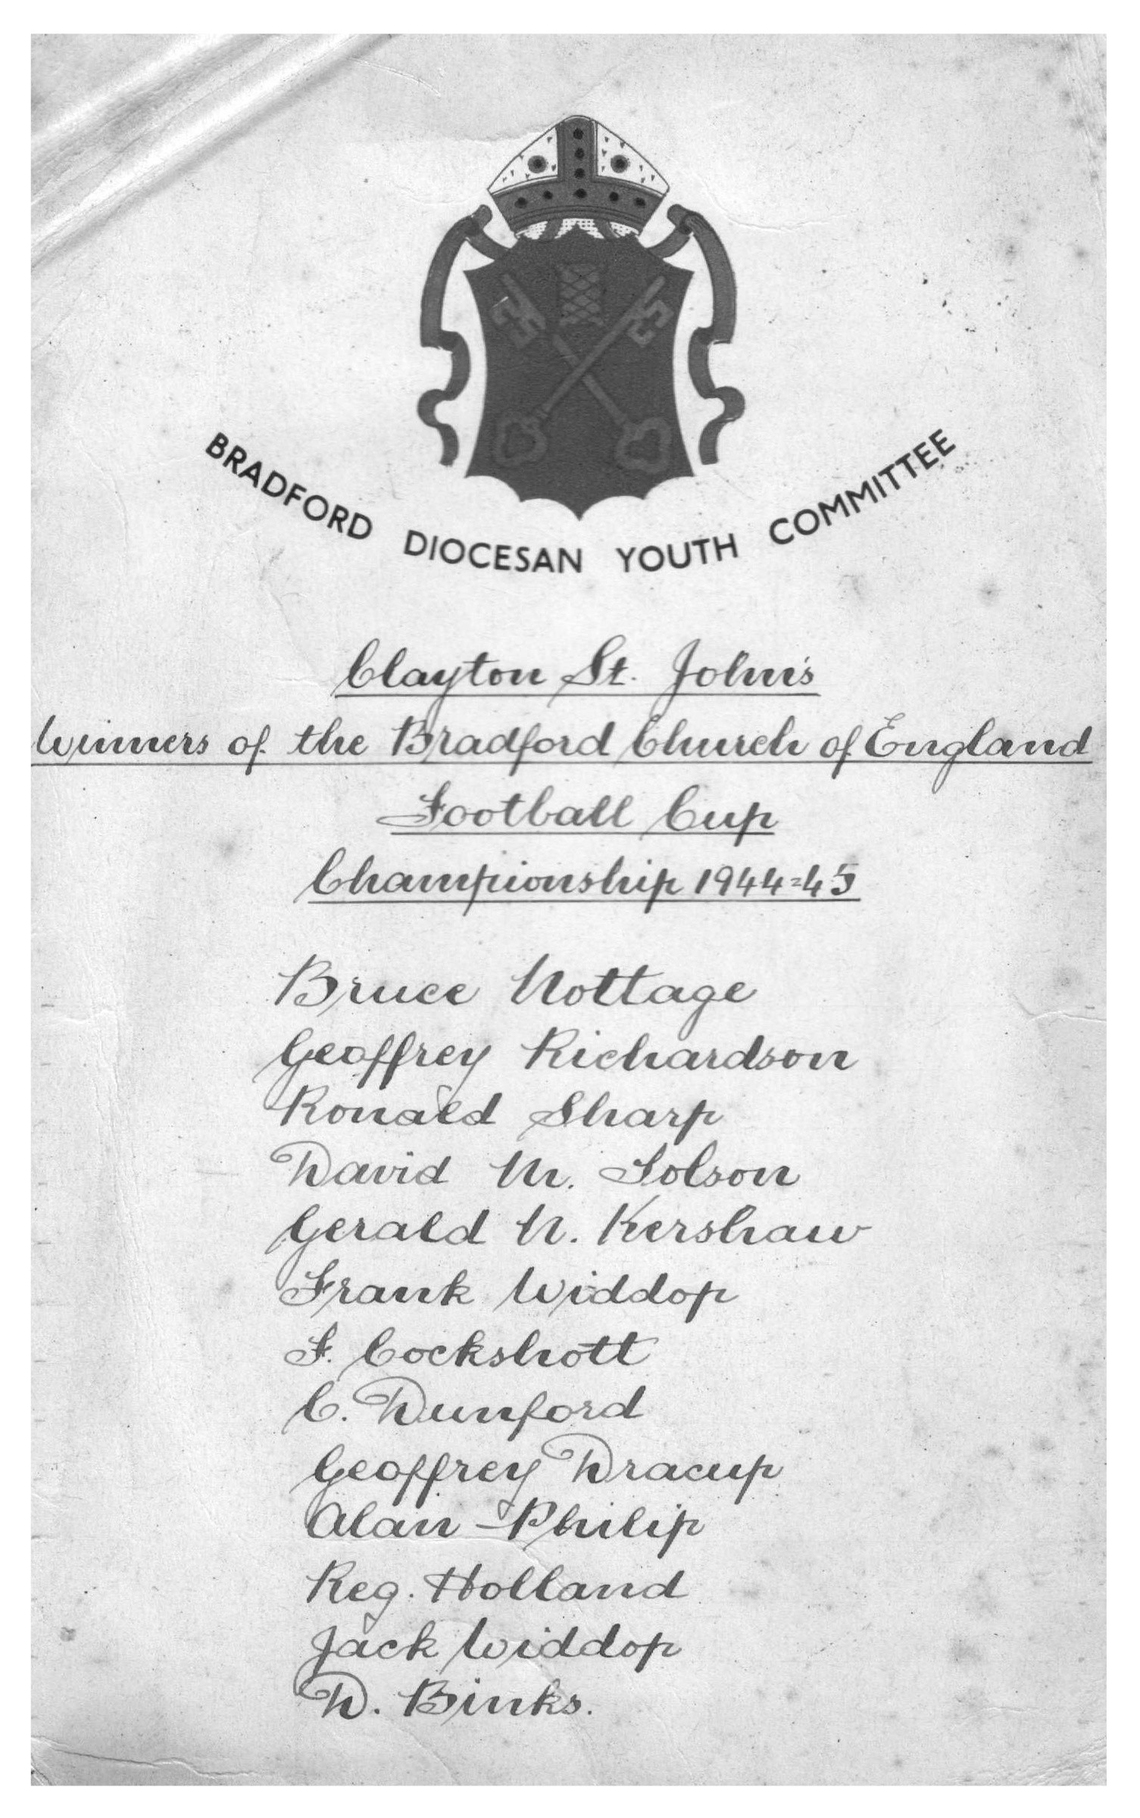 BRADFORD DIOCESAN YOUTH COMMITTEE
Clayton St. John's
Winners of the Bradford Church of England
Football Cup
Championship 1944=45
Bruce Nottage
Geoffrey Richardson
Ronald Sharp
David M. Tolson
Gerald N. Kershaw
Frank Widdop
F. Cockshott
C. Dunford
Geoffrey Dracup
Alan Philip
Reg. Holland
Jack Widdop
D. Binks.